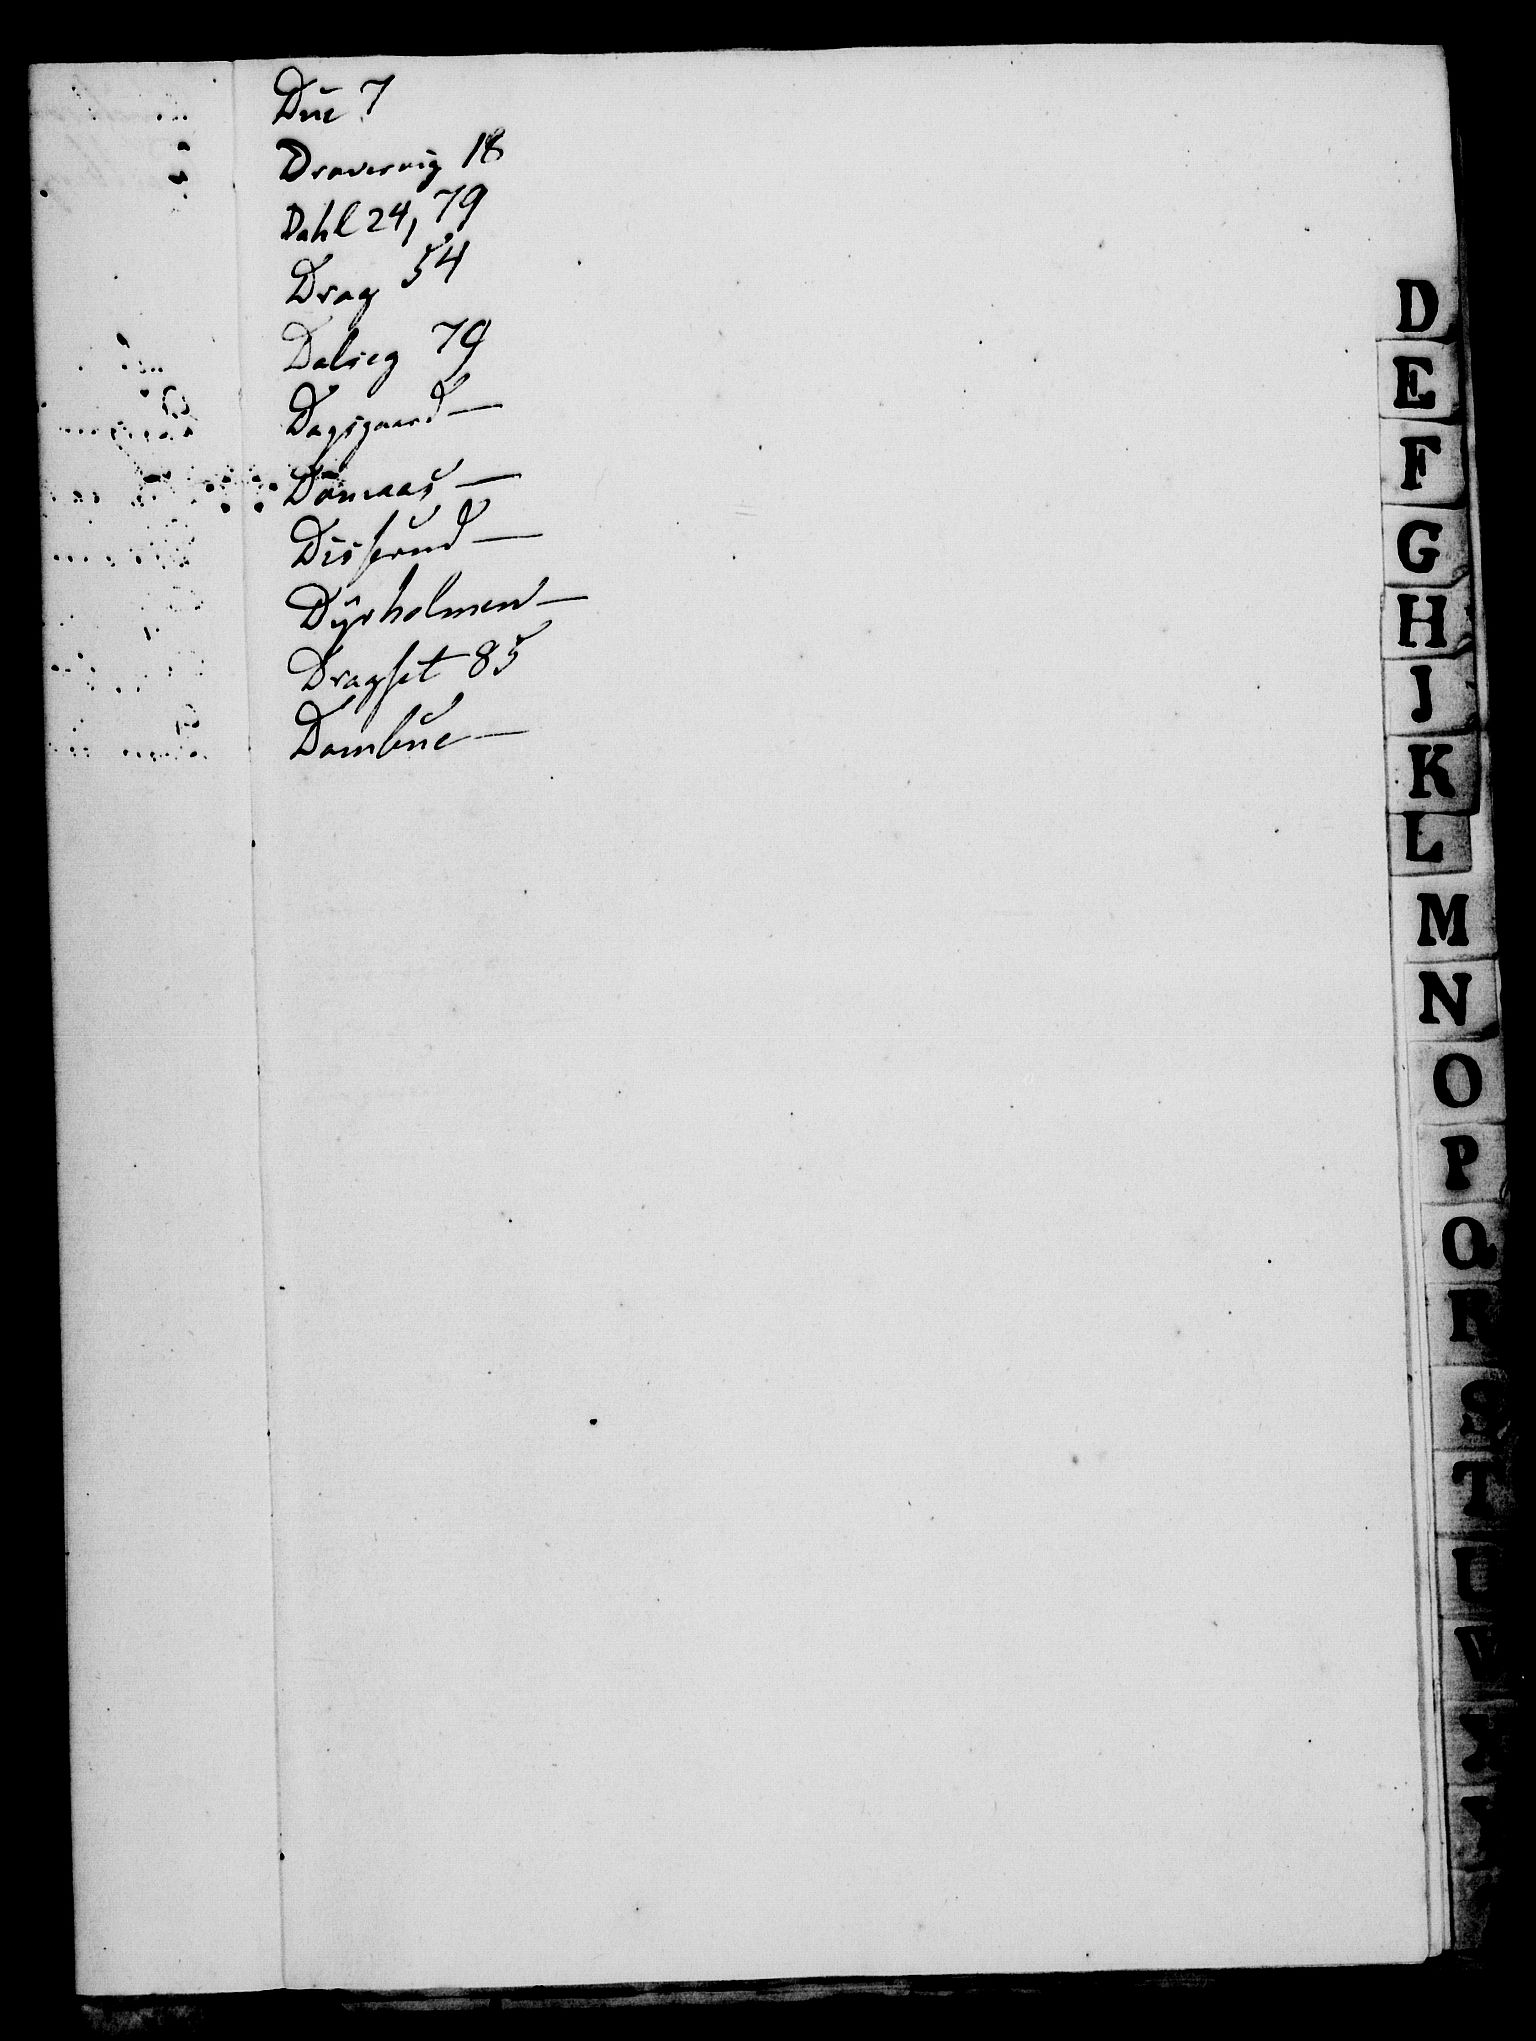 Due 7
Draversvig 18
Dahl 24, 79
Drag 54
Dalseg 79
Dagsgaard —
Dömaas —
Disserud —
Dÿrholmen —
Dragset 85
Dambue —
D
E
F
G
H
J
K
L
M
N
O
P
Q
R
S
T
U
V
X